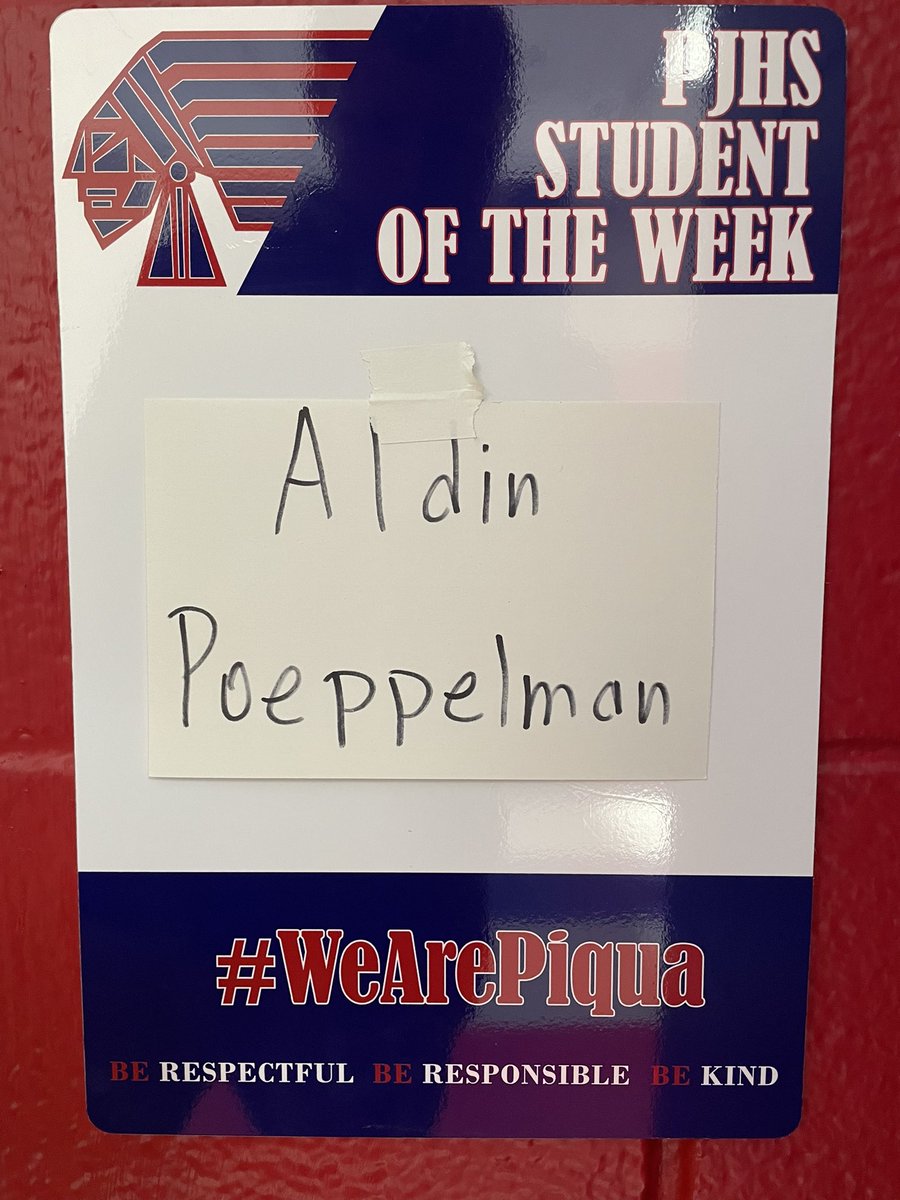 PJHS
STUDENT
OF THE WEEK
Aldin
Poeppelman
#WeArePiqua
BE RESPECTFUL BE RESPONSIBLE BE KIND